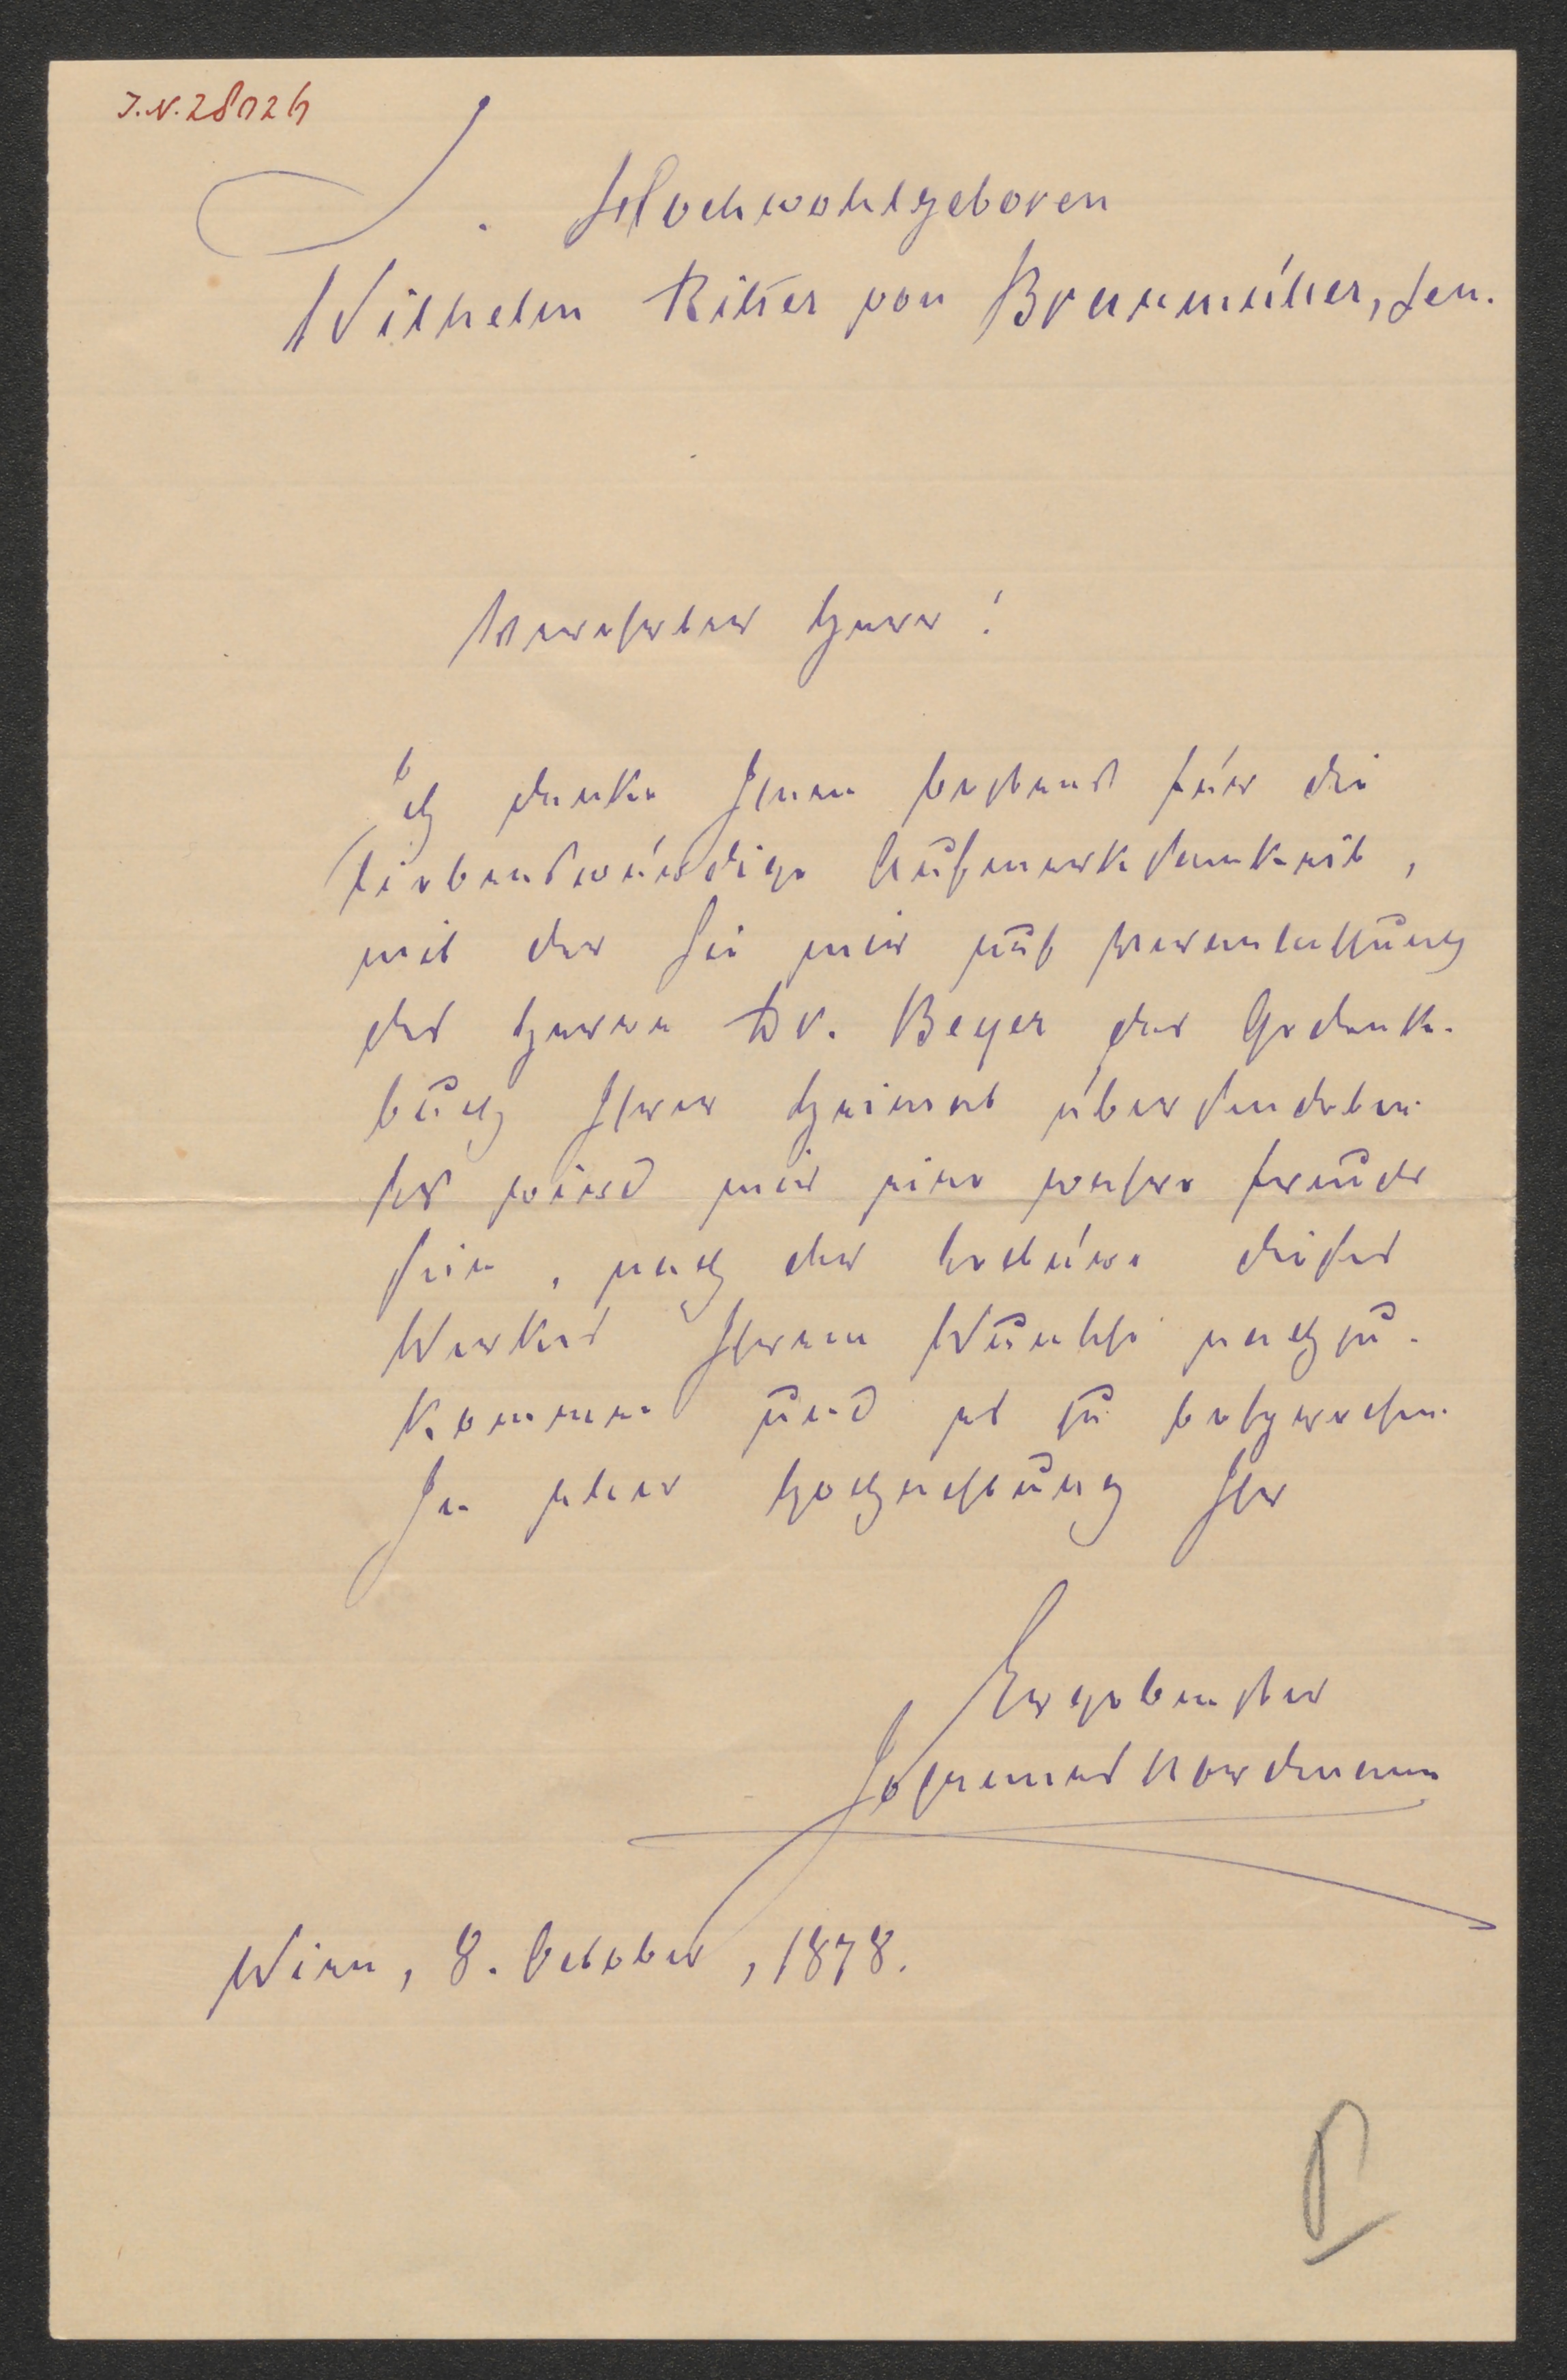 J.N. 28026
S. Hochwohlgeboren
Wilhelm Ritter von Braumüller, sen.
Verehrter Herr!
Ich danke Ihnen bestens für die
liebenswürdige Aufmerksamkeit,
mit der Sie mir auf Veranlassung
des Herrn Dr. Beyer das Gedenk-
buch Ihrer Heimat übersendeten.
Es wird mir eine wahre Freude
sein, nach der Lectüre dieses
Werkes Ihrem Wunsche nachzu-
kommen und es zu besprechen.
In aller Hochachtung Ihr
Ergebenster
Johannes Nordmann
Wien, 8. October, 1878.